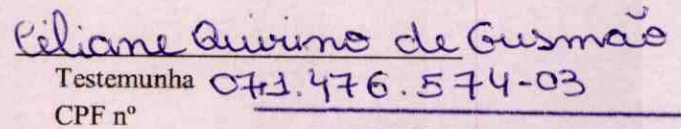 Celiane Quirino de Gusmão
Testemunha 071.476.574-03
CPF nº